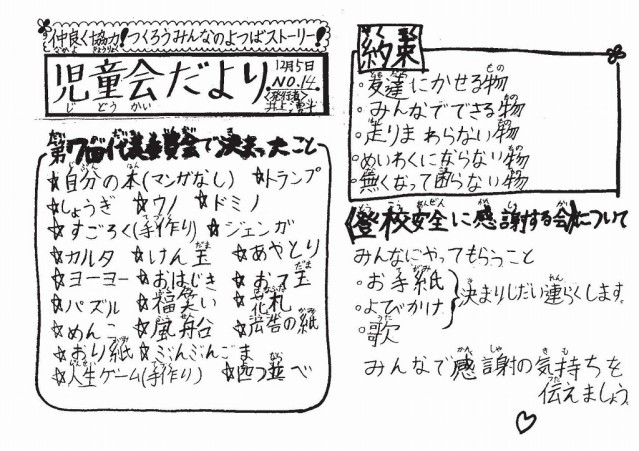 仲良く協力!つくろうみんなのよつばストーリー!
児童会だより
12月5日
NO.14
<発行者>
第7回代表委員会で決まったこと
☆自分の本(マンガなし) ☆トランプ
☆しょうぎ ☆ウノ ☆ドミノ
☆すごろく(手作り) ☆ジェンガ
☆カルタ ☆けん玉 ☆あやとり
☆ヨーヨー ☆おはじき ☆お手玉
☆パズル ☆福笑い ☆花札
☆めんこ ☆風船 ☆広告の紙
☆おり紙 ☆ぶんぶんごま
☆人生ゲーム(手作り) ☆四つ並べ
約束
・友達にかせる物
・みんなでできる物
・走りまわらない物
・めいわくにならない物
・無くなって困らない物
《登校安全に感謝する会》について
みんなにやってもらうこと
・お手紙
・よびかけ
・歌
決まりしだい連らくします。
みんなで感謝の気持ちを
伝えましょう。